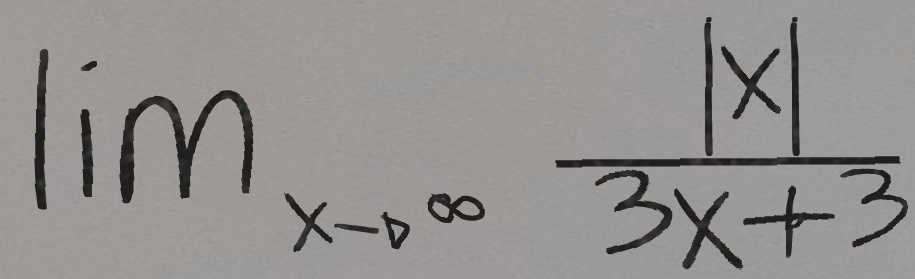 lim x→∞ |x| / 3x+3